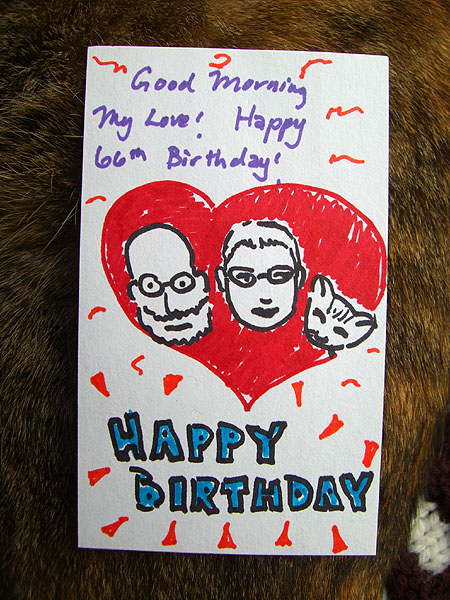 Good Morning
My Love! Happy
66th Birthday!
HAPPY
BIRTHDAY